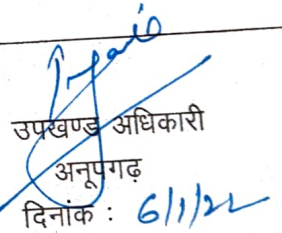 उपखण्ड अधिकारी
अनूपगढ़
दिनांक : 6/1/22